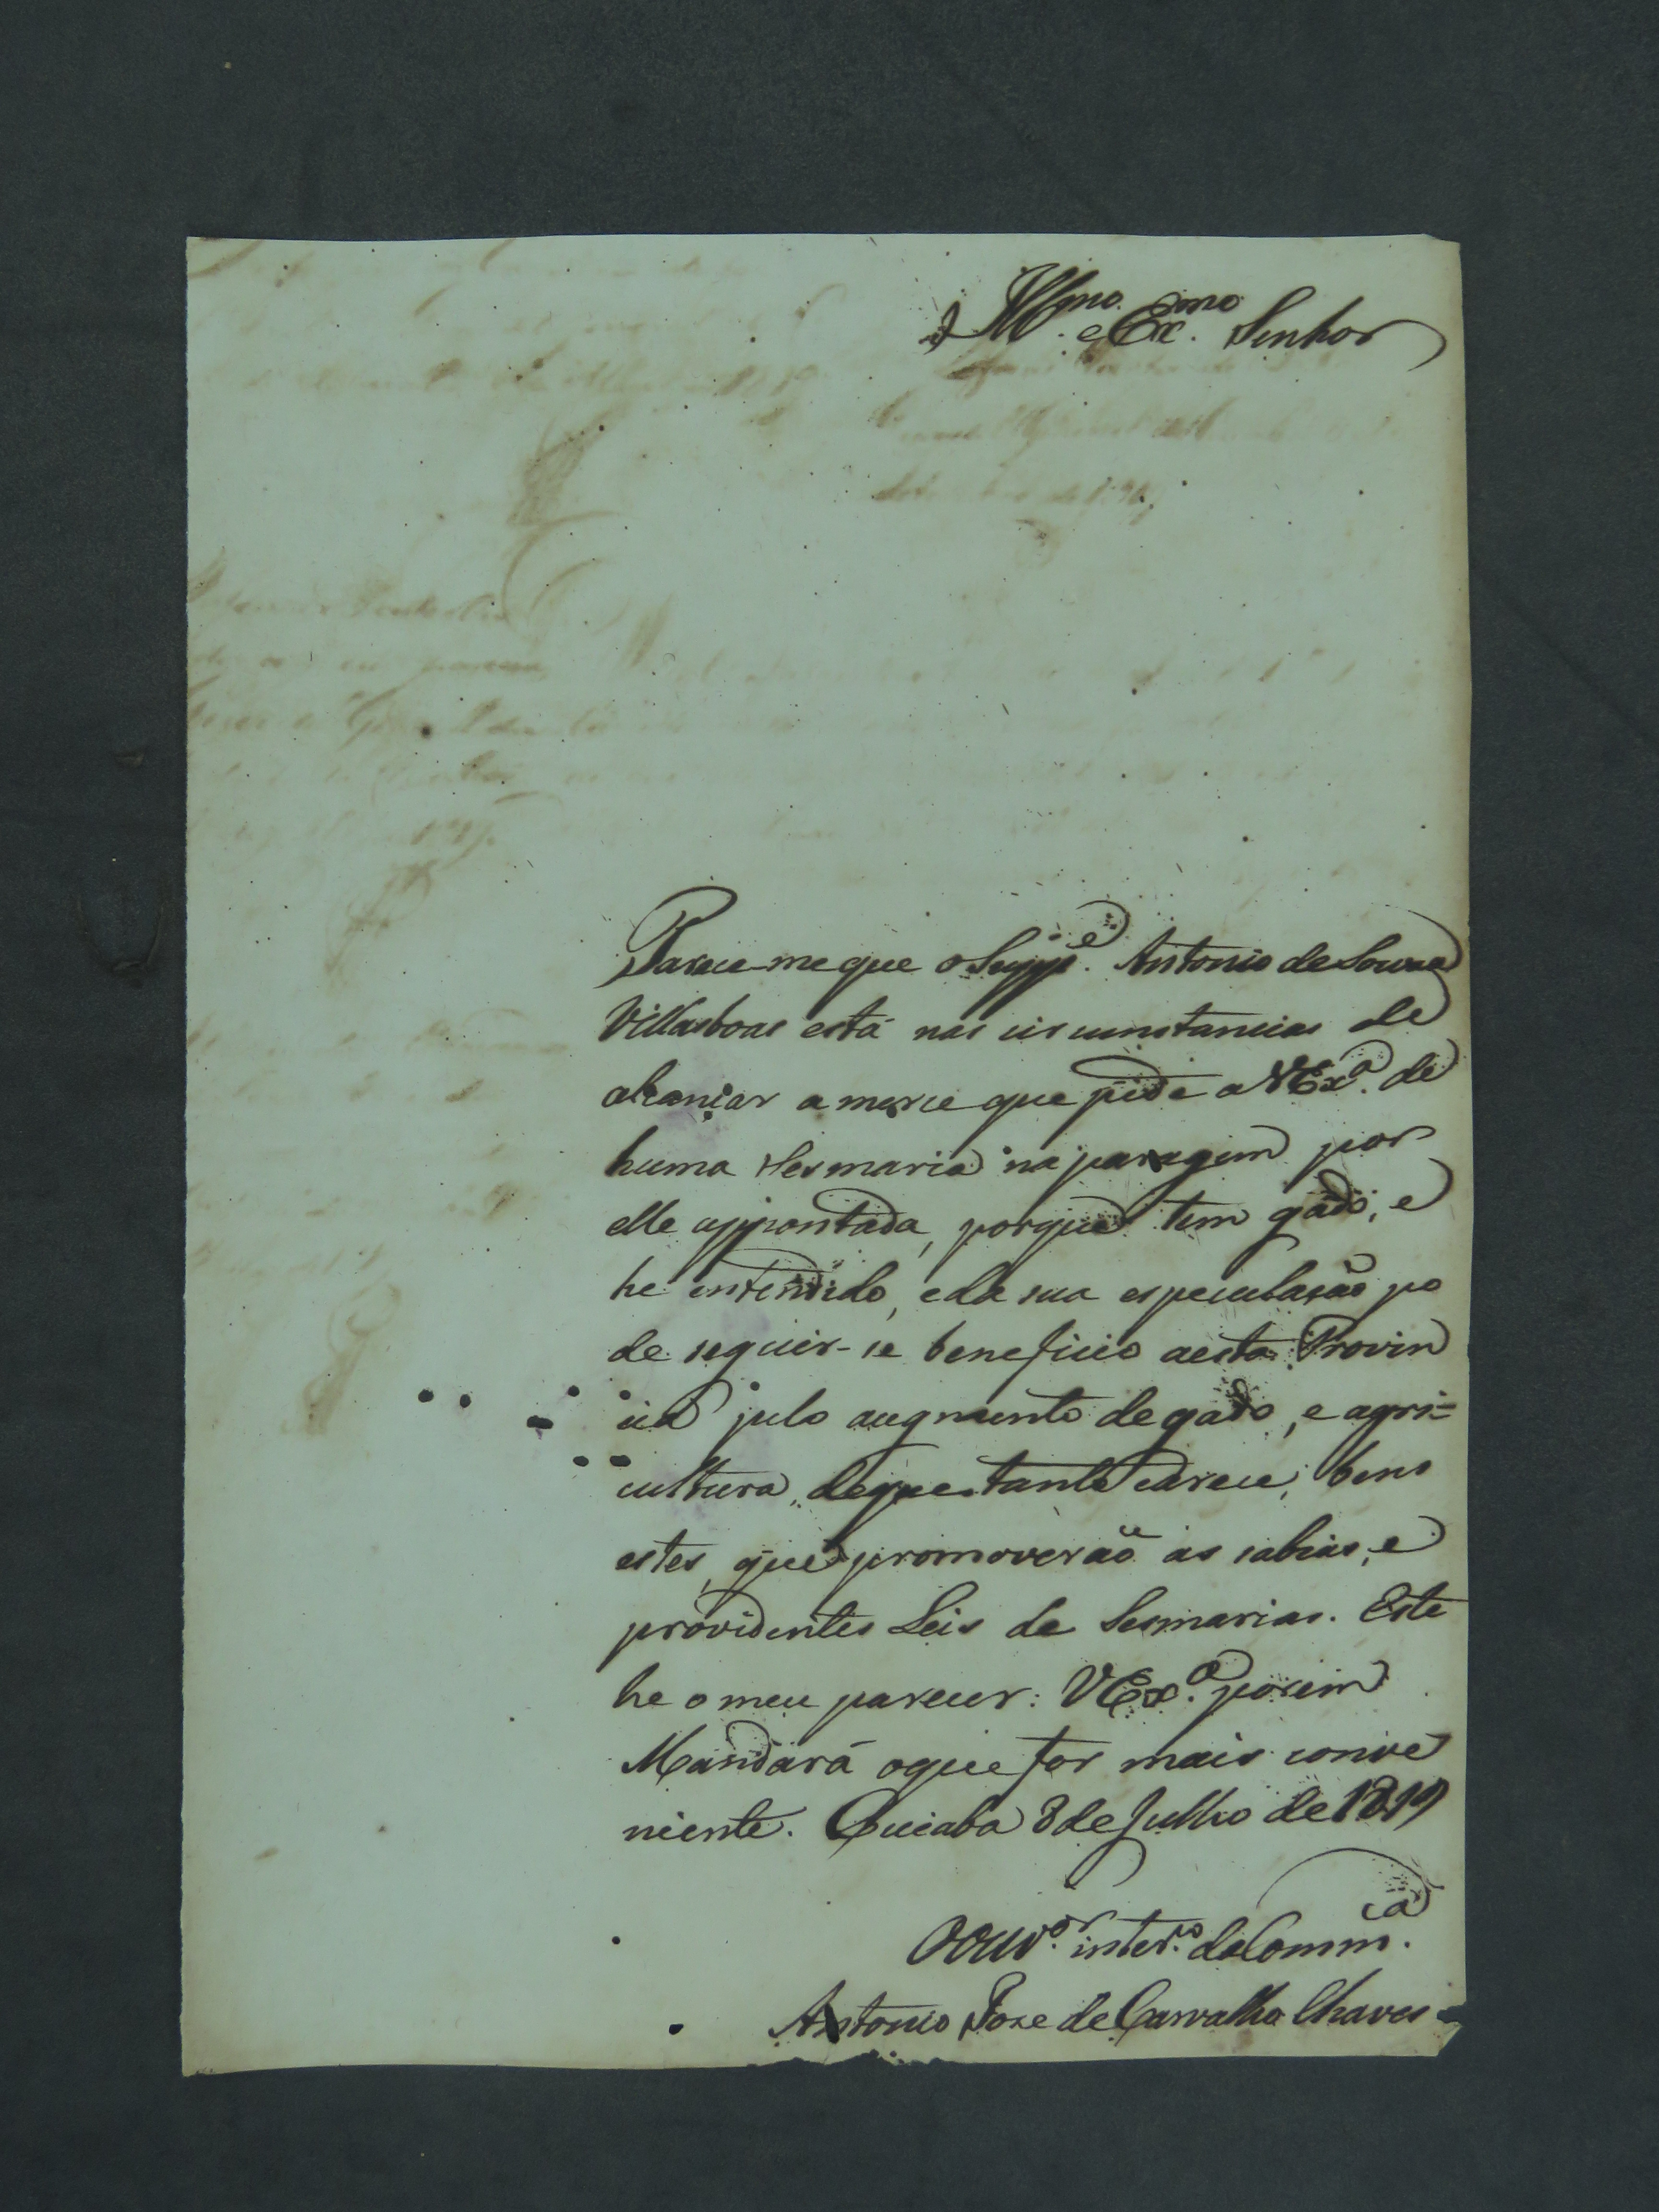 Illmo. e Exmo. Senhor
Parece-me que o Suppe. Antonio de Souza
Villasboas está nas circunstancias de
alcançar a merce que pede a VExa. de
huma Sesmaria na paragem por
elle appontada, porque tem gado, e
he entendido, e da sua especulação po
de seguir-se beneficio a esta Provin
cia pelo augmento de gado, e agri=
cultura, de que tanto carece, bens
estes, que promoverão as sabias, e
providentes Leis de Sesmarias. Este
he o meu parecer: VExa. porem
Mandará o que for mais conve
niente. Cuiaba 8 de Julho de 1819
O Ouvor. intero. da Commca.
Antonio Joze de Carvalho Chaves